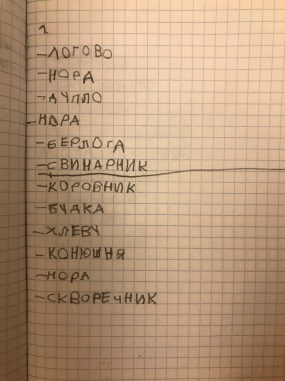 1
-ЛОГОВО
-НОРА
-ДУПЛО
-НОРА
-БЕРЛОГА
-СВИНАРНИК
-КОРОВНИК
-БУДКА
-ХЛЕВУ
-КОНЮШНЯ
-НОРА
-СКВОРЕЧНИК